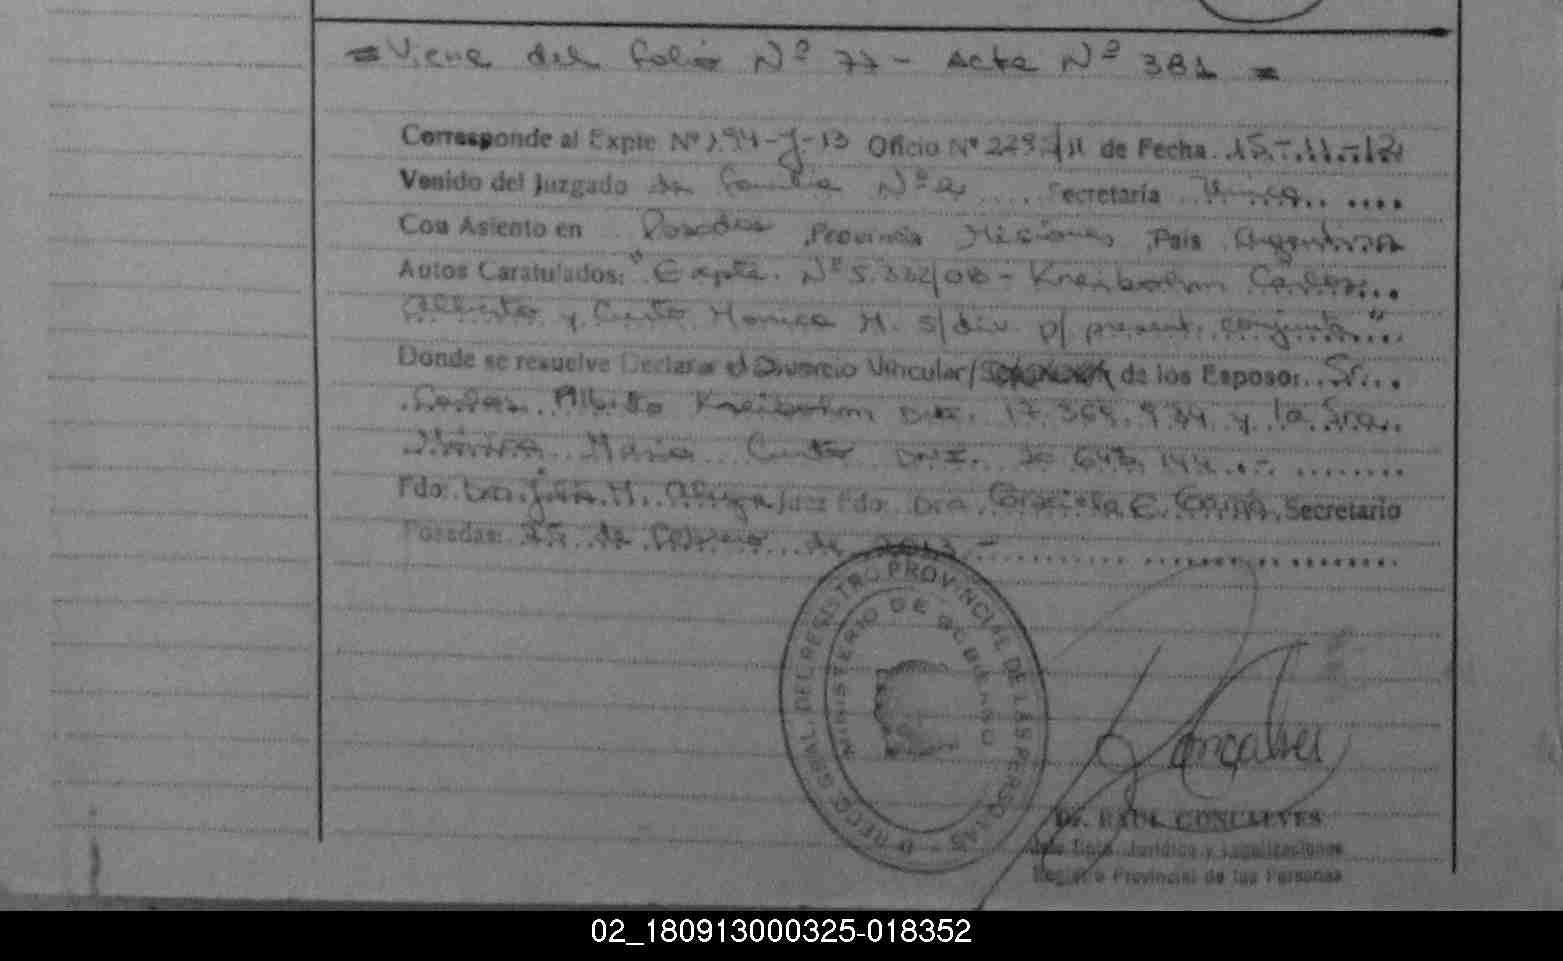 = Viene del folio Nº 77 - Acta Nº 381 =
Corresponde al Expte Nº 194-J-13 Oficio Nº 229 /11 de Fecha 15-11-12
Venido del Juzgado de Familia Nº 2 Secretaría Unica
Con Asiento en Posadas Provincia Misiones País Argentina
Autos Caratulados: "Expte. Nº 5.332/08 - Kreibohm Carlos
Alberto y Curto Monica M. s/div. p/ present. conjunta"
Donde se resuelve Declarar el Divorcio Vincular/ de los Esposos Sr.
Carlos Alberto Kreibohm DNI. 17.369.934 y la Sra.
Mónica Maria Curto DNI. 20.645.144
Fdo: Dra. M. Juez Fdo. Dra. Graciela E. Secretario
Posadas: 25 de Febrero de 2013 -
DIRECC. GRAL. DEL REGISTRO PROVINCIAL DE LAS PERSONAS
MINISTERIO DE GOBIERNO
Gonçalves
Dr. RAUL GONCALVES
Jefe Dpto. Jurídico y Legalizaciones
Registro Provincial de las Personas
02_180913000325-018352